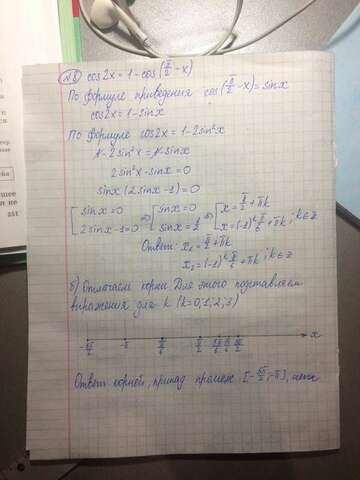 №1 cos2x = 1 - cos(π/2 - x)
По формуле приведения cos(π/2 - x) = sinx
cos2x = 1 - sinx
По формуле cos2x = 1 - 2sin²x
1 - 2sin²x = 1 - sinx
2sin²x - sinx = 0
sinx(2sinx - 1) = 0
[sinx = 0 [sinx = 0 [x = π/2 + πk
2sinx - 1 = 0 ⇔ sinx = 1/2 ⇔ x = (-1)^k π/6 + πk ; k∈z
Ответ: x₁ = π/2 + πk
x₂ = (-1)^k π/6 + πk ; k∈z
б) Отлагаем корни. Для этого подставляем
выражения для k (k=0,1,2,3)
x
Ответ корней, принад промеж. [-5π/2; -π],